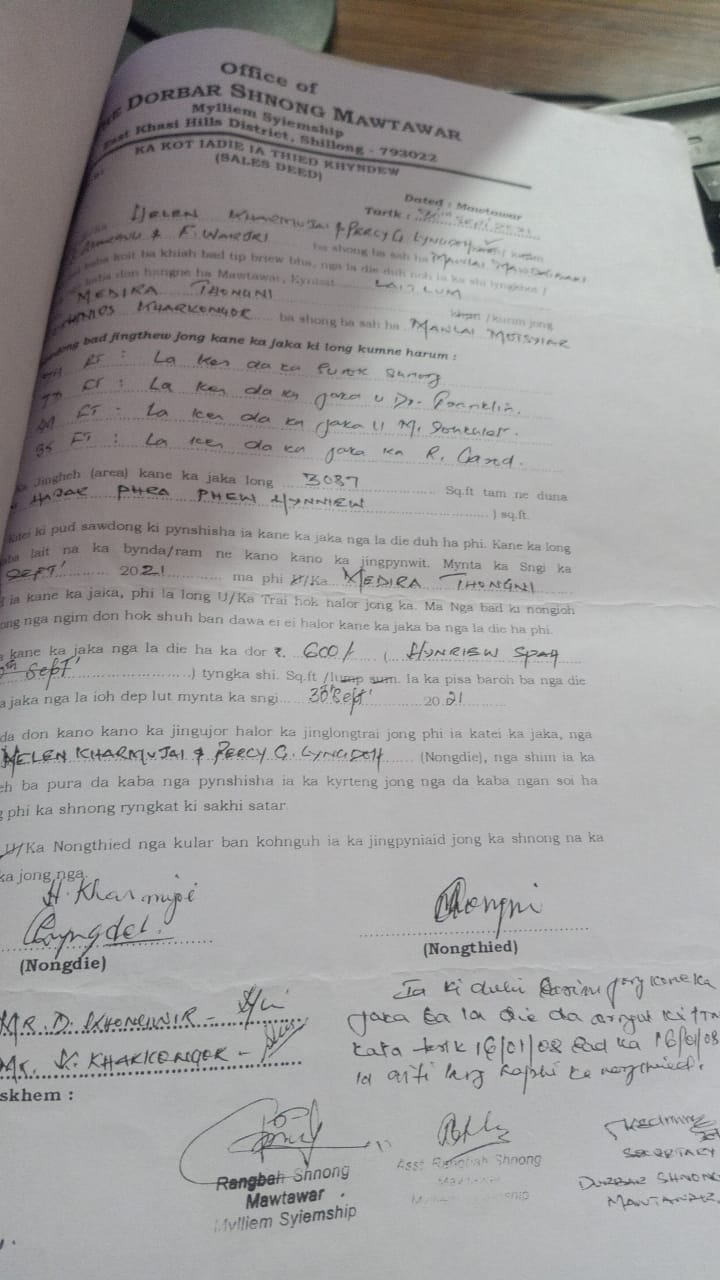 Office of
DORBAR SHNONG MAWTAWAR
Mylliem Syiemship
East Khasi Hills District, Shillong - 793022
KA KOT IADIE IA THIED KHYNDEW
(SALES DEED)
Dated : Mawtawar
Tarik :
HELEN KHARMUJAI & PERCY G. LYNGDOH
& F. WARJRI ba shong ba sah ha MAWLAI
koit ba khiah bad tip briew bha, nga la die duh noh ia ka shi lyngkhot /
don hangne ha Mawtawar, Kyntait LAITLUM
MEDIRA THONGNI / kurim jong
KHARKONGOR ba shong ba sah ha MAWLAI MOTSYIAR
bad jingthew jong kane ka jaka ki long kumne harum :
FT : La ker da ka Surok Shnong
FT : La ker da ka jaka u Dr.
FT : La ker da ka jaka U M.
FT : La ker da ka jaka ka R.
Jingheh (area) kane ka jaka long 3087 Sq.ft tam ne duna
HAJAR PHRA PHEW HYNNIEW ) sq.ft.
katei ki pud sawdong ki pynshisha ia kane ka jaka nga la die duh ha phi. Kane ka long
lait na ka bynda/ram ne kano kano ka jingpynwit. Mynta ka Sngi ka
SEPT' 2021 ma phi U/Ka MEDIRA THONGNI
ia kane ka jaka, phi la long U/Ka Trai hok halor jong ka. Ma Nga bad ki nongioh
nga ngim don hok shuh ban dawa ei ei halor kane ka jaka ba nga la die ha phi.
kane ka jaka nga la die ha ka dor ₹. 600/- ( HYNRIEW SPAH
Sept' ) tyngka shi. Sq.ft /lump sum. Ia ka pisa baroh ba nga die
jaka nga la ioh dep lut mynta ka sngi 30 Sept' 2021
da don kano kano ka jingujor halor ka jinglongtrai jong phi ia katei ka jaka, nga
HELEN KHARMUJAI & PERCY G. LYNGDOH (Nongdie), nga shim ia ka
ba pura da kaba nga pynshisha ia ka kyrteng jong nga da kaba ngan soi ha
phi ka shnong ryngkat ki sakhi satar.
U/Ka Nongthied nga kular ban kohnguh ia ka jingpyniaid jong ka shnong na ka
jong nga.
H. Kharmujai
(Nongdie)
(Nongthied)
MR. D. KHONGWIR -
Mr. K. KHARKONGOR -
Ia ki dulir jong kane ka
jaka ba la die da
kata tarik 16/01/08 bad ka 16/01/08
la aiti lang haphi ka nongthied.
skhem :
Rangbah Shnong
Mawtawar
Mylliem Syiemship
Asst Rangbah Shnong
SECRETARY
DORBAR SHNONG
MAWTAWAR